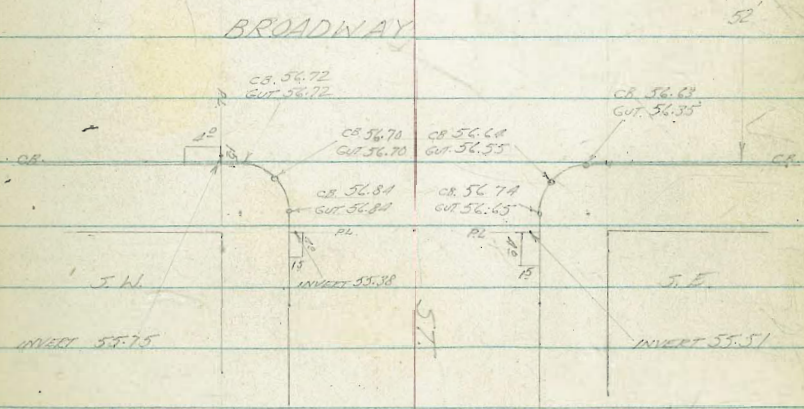 52'
BROADWAY
CB. 56.72
GUT 56.72
PL
CB. 56.63
GUT. 56.35
4⁰
CB. 56.70
GUT. 56.70
CB. 56.64
GUT. 56.55
CB.
15
CB.
CB. 56.84
GUT. 56.84
CB. 56.74
GUT. 56.65
PL
PL
4⁰
15
4⁰
15
S. W.
INVERT 55.38
S. E.
ST.
INVERT 55.75
INVERT 55.51